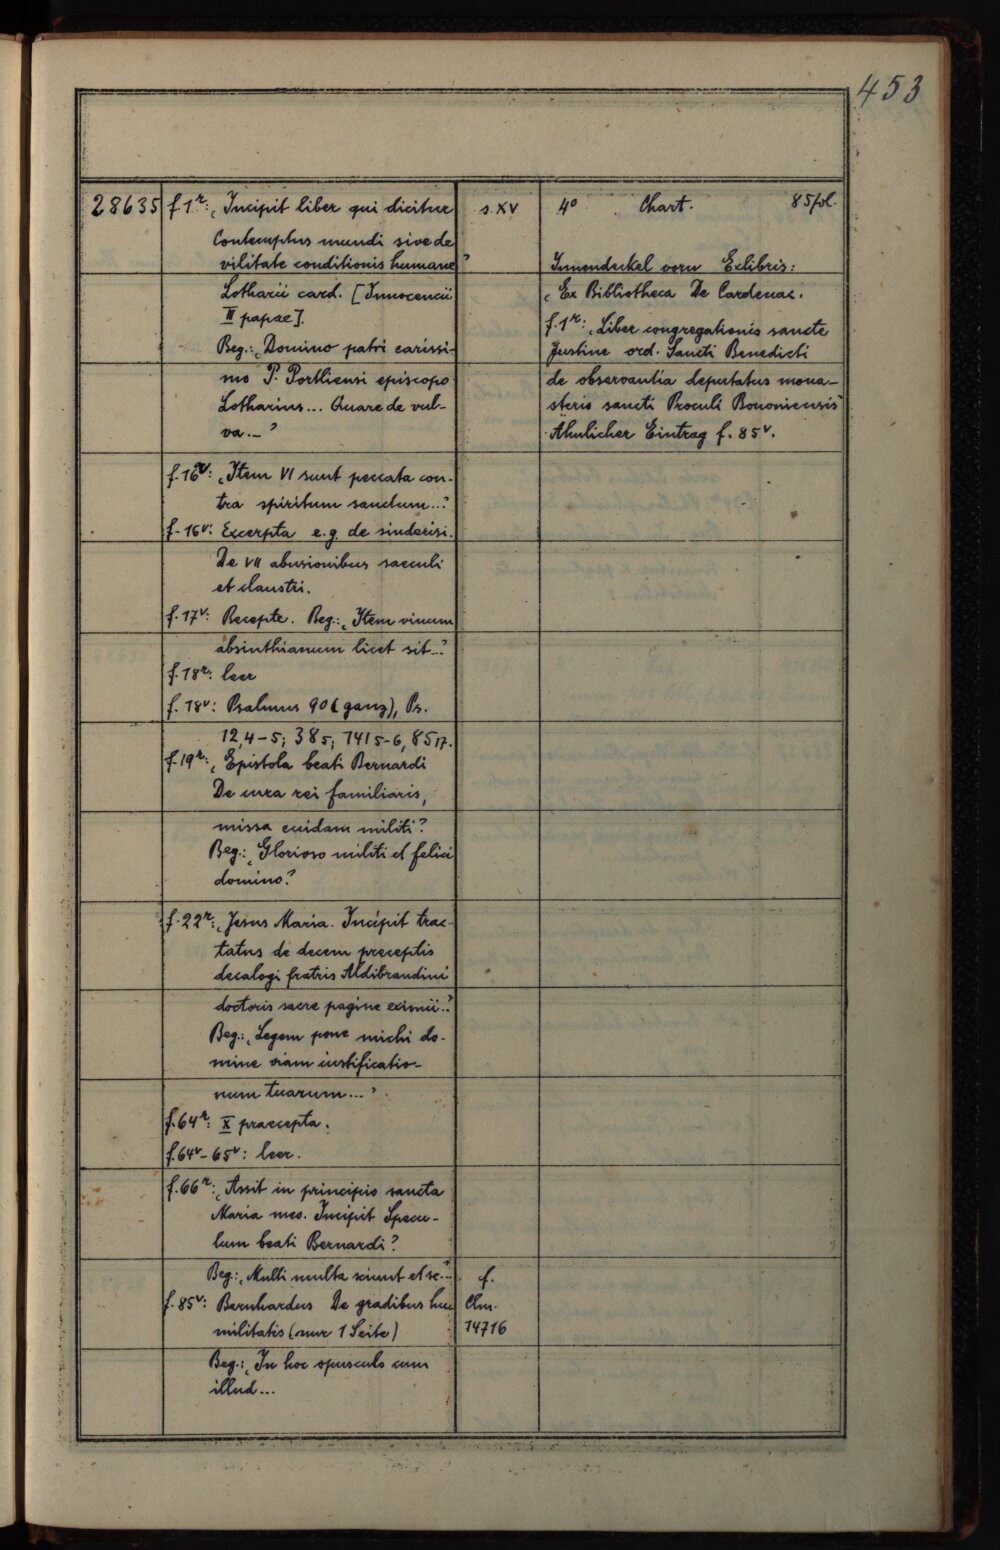 453
28635 f 1r: „Incipit liber qui dicitur
Contemptus mundi sive de
vilitate conditionis humane“
Lotharii card. [Innocencii
III papae].
Beg.: „Domino patri carissi-
mo P. Porthiensi episcopo
Lotharius... Quare de vul-
va.–“
f. 16v: „Item VI sunt peccata con-
tra spiritum sanctum...“
f. 16v: Excerpta e.g. de sinderisi.
De VII abusionibus saeculi
et claustri.
f. 17v: Recepte. Beg.: „Item vinum
absinthianum licet sit...“
f. 18r: leer
f. 18v: Psalmus 90 (ganz), Ps.
12,4-5; 385; 1415-6, 8517.
f. 19r: „Epistola beati Bernardi
De cura rei familiaris,
missa cuidam militi“
Beg.: „Glorioso militi et felici
domino“
f. 22r: „Jesus Maria. Incipit trac-
tatus de decem preceptis
decalogi fratris Aldibrandini
doctoris sacre pagine eximii.“
Beg.: „Legem pone michi do-
mine viam iustificatio-
num tuarum...“
f. 64r: X praecepta.
f. 64v-65v: leer.
f. 66r: „Assit in principio sancta
Maria meo. Incipit Specu-
lum beati Bernardi“
Beg.: „Multi multa sciunt et se..“
f. 85v: Bernhardus De gradibus hu
militatis (nur 1 Seite)
Beg.: „In hoc opusculo cum
illud...
s. XV
f.
Clm.
14716
4° Chart. 85 fol.
Innendeckel vorn Exlibris:
„Ex Bibliotheca De Cardenac.
f. 1r: „Liber congregationis sancte
Justine ord. Sancti Benedicti
de observantia deputatus mona-
sterio sancti Proculi Bononiensis“
Ähnlicher Eintrag f. 85v.